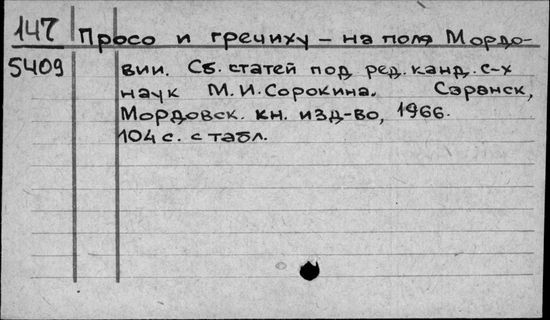 147 Просо и гречиху – на поля Мордо-
5409 вии. Сб. статей под ред. канд. с-х
наук М.И. Сорокина. Саранск,
Мордовск. кн. изд-во, 1966.
104 с. с табл.